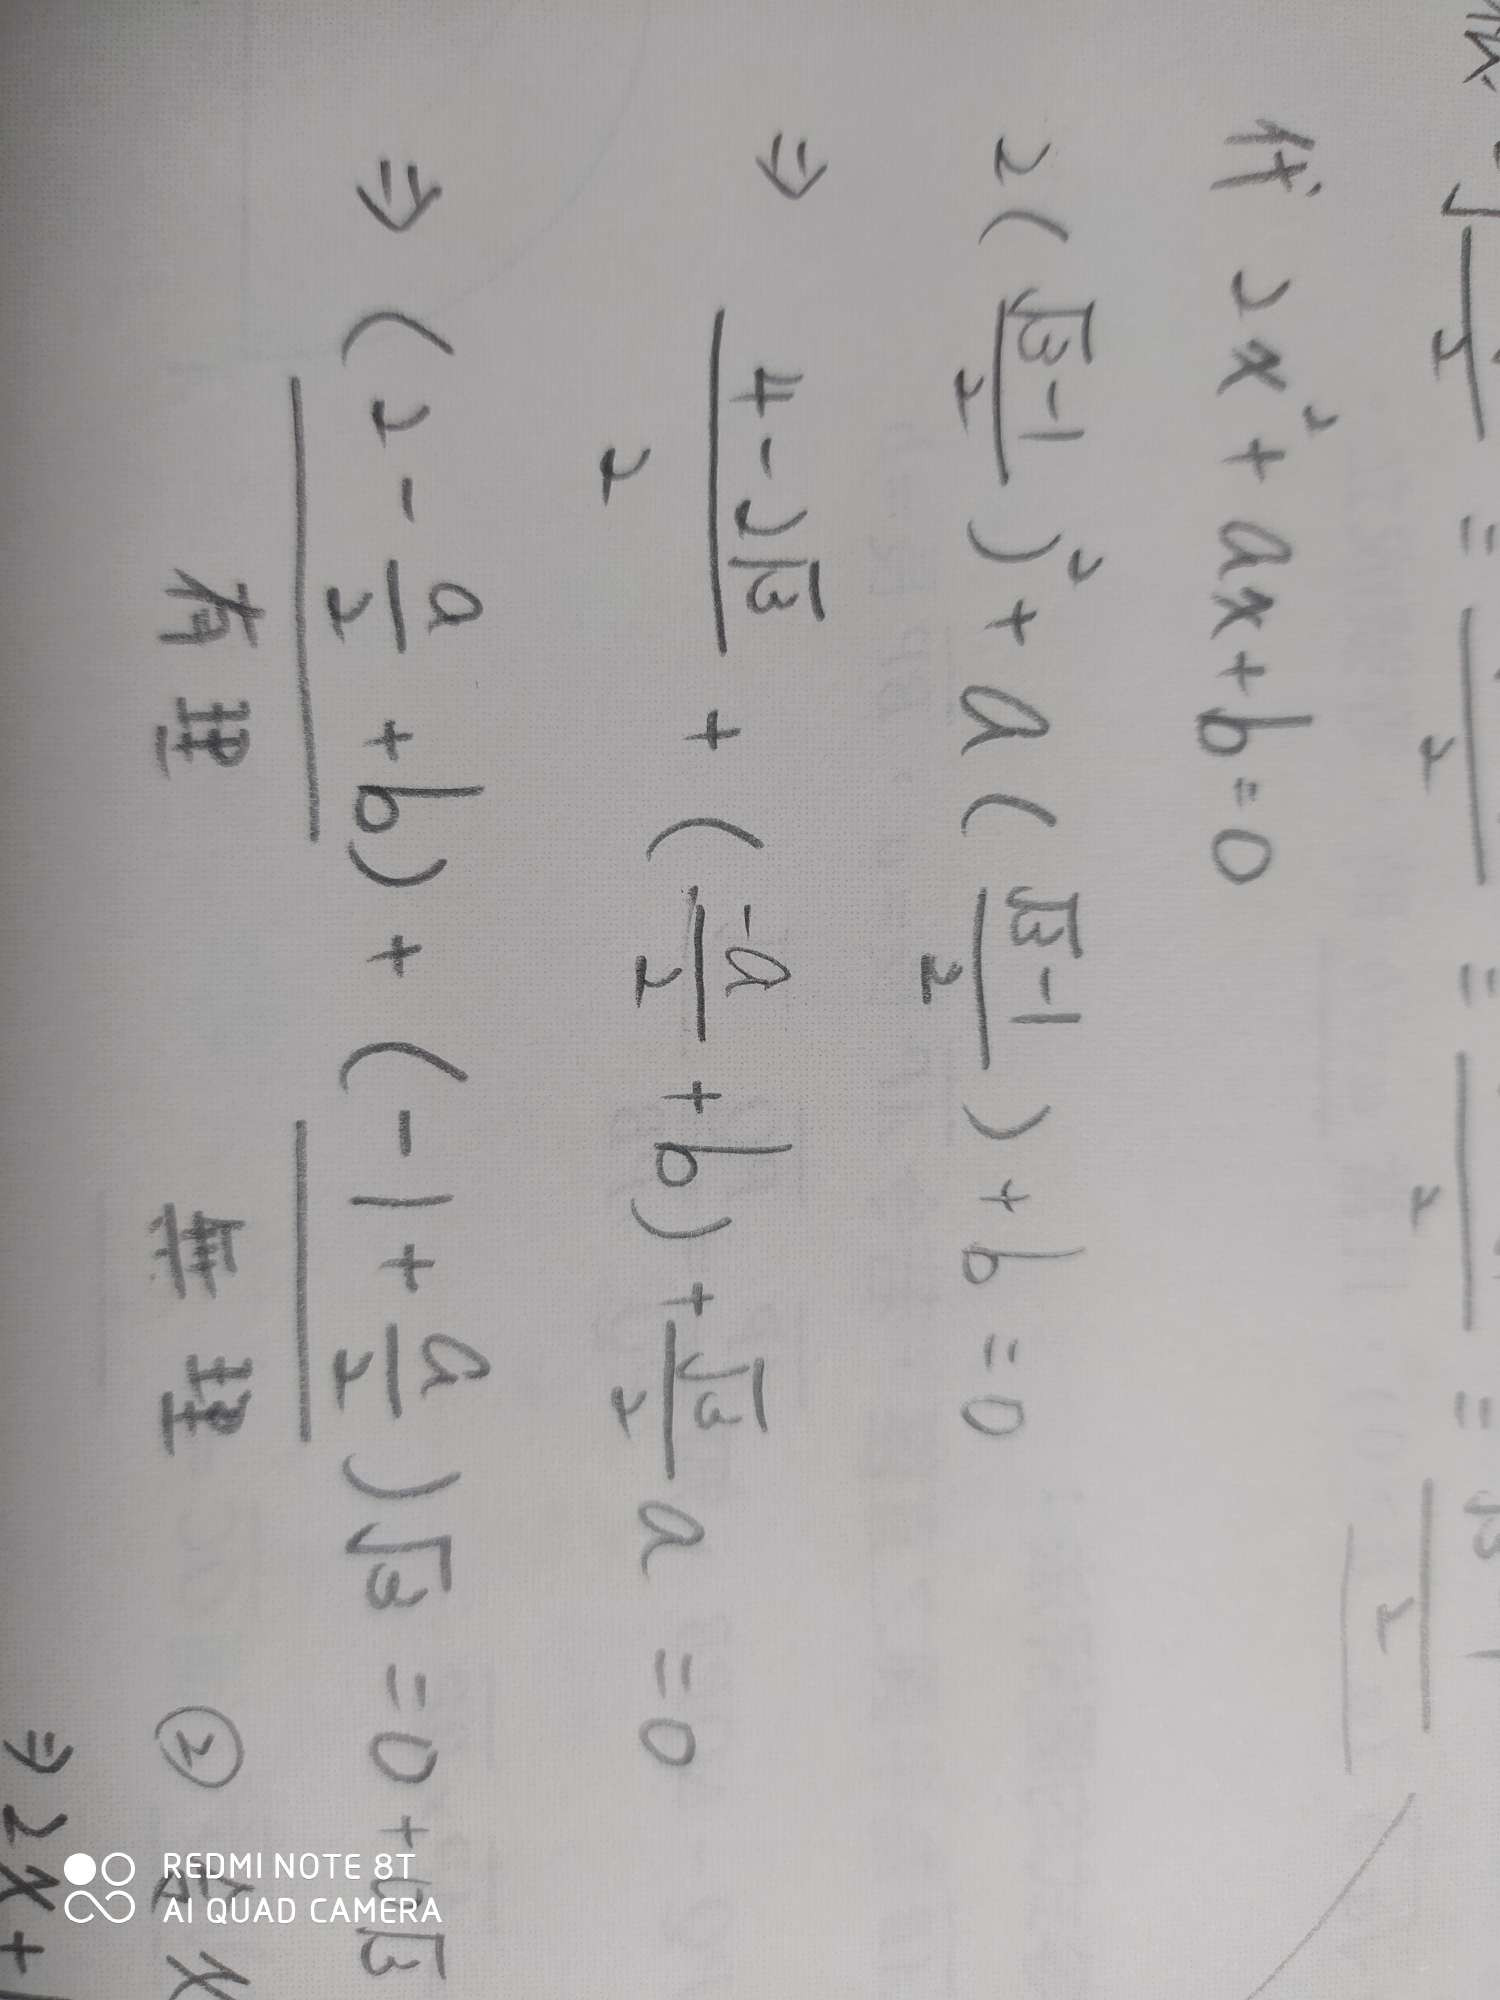 代 2x²+ax+b=0
2(\frac{√3-1}{2})²+a(\frac{√3-1}{2})+b=0
⇒ \frac{4-2√3}{2}+(\frac{-a}{2}+b)+\frac{√3}{2}a=0
⇒ (2-\frac{a}{2}+b)+(-1+\frac{a}{2})√3=0+0√3
有理 無理 ②
⇒2x+
REDMI NOTE 8T
AI QUAD CAMERA